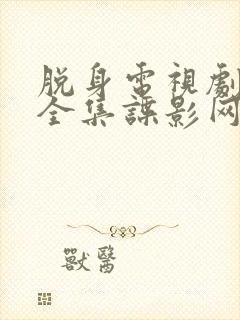 脱身電視劇
全集諜影网
獸醫